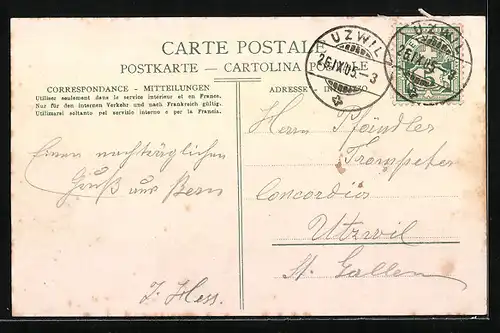 CARTE POSTALE
POSTKARTE — CARTOLINA POSTALE
CORRESPONDANCE - MITTEILUNGEN
Utiliser seulement dans le service intérieur et en France.
Nur für den internen Verkehr und nach Frankreich gültig.
Utilizarsi soltanto pel servizio interno e per la Francia.
Einen nachträglichen
Gruß aus Bern
J. Hess.
UZWIL
26.IX.05.-3
UZWIL
26.IX.05.-3
ADRESSE - INDIRIZZO
Herrn Pfändler
Trompeter
Concordia
Utzwil
St. Gallen